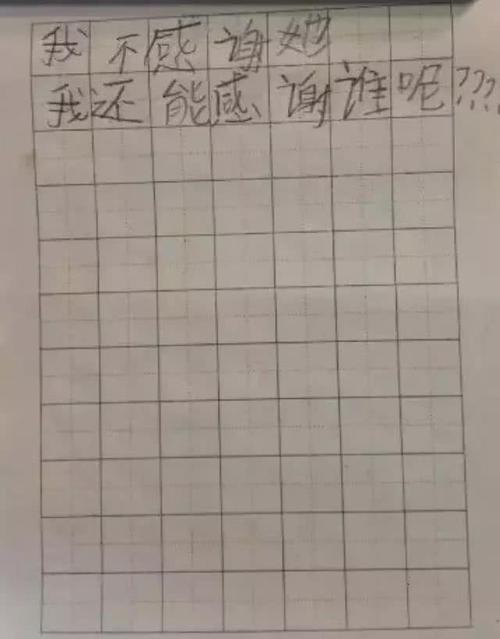 我不感谢她
我还能感谢谁呢???